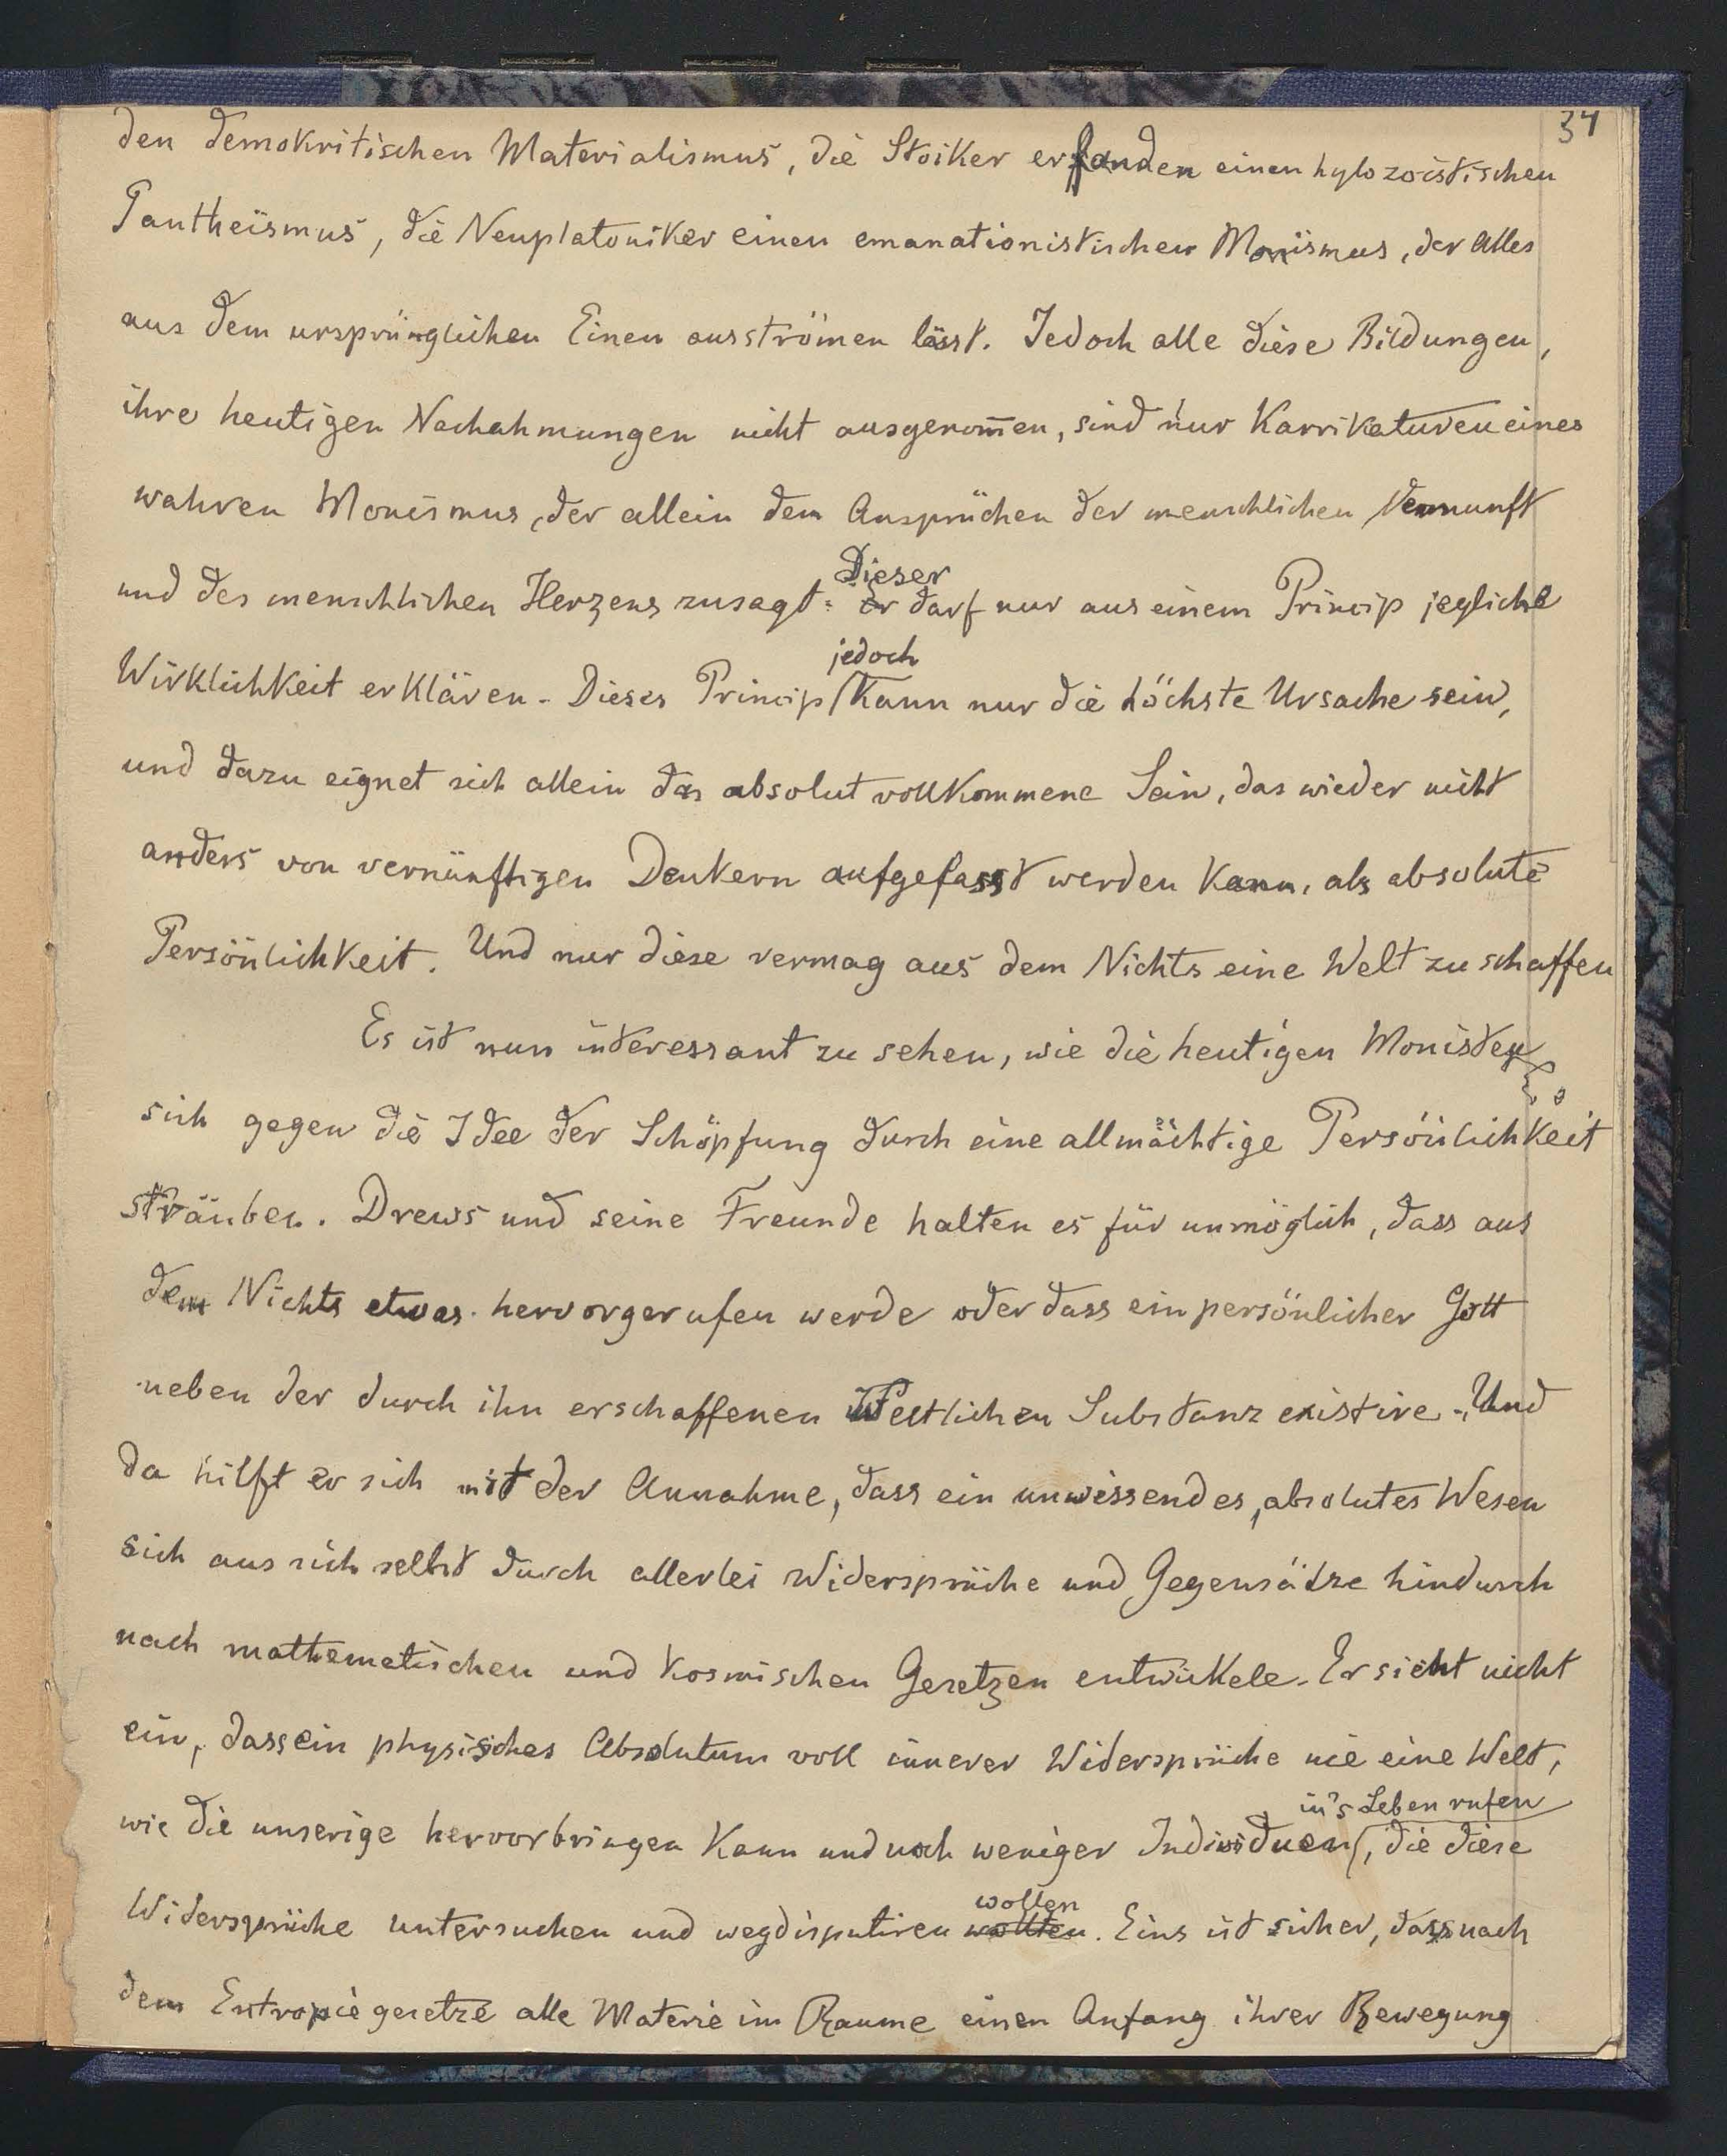 34
den demokritischen Materialismus, die Stoiker erfanden einen hylozoistischen
Pantheismus, die Neuplatoniker einen emanationistischen Monismus, der Alles
aus dem ursprünglichen Einen ausströmen lässt. Jedoch alle diese Bildungen,
ihre heutigen Nachahmungen nicht ausgenom̅en, sind nur Karrikaturen eines
wahren Monismus, der allein den Ansprüchen der menschlichen Vernunft
Dieser
und des menschlichen Herzens zusagt: Er darf nur aus einem Princip jegliche
jedoch
Wirklichkeit erklären. Dieses Princip kann nur die höchste Ursache sein,
und dazu eignet sich allein das absolut vollkommene Sein, das wieder nicht
anders von vernünftigen Denkern aufgefasst werden kann, als absolute
Persönlichkeit. Und nur diese vermag aus dem Nichts eine Welt zu schaffen
Es ist nun interessant zu sehen, wie die heutigen Monisten
sich gegen die Idee der Schöpfung durch eine allmächtige Persönlichkeit
sträuben. Drews und seine Freunde halten es für unmöglich, dass aus
dem Nichts etwas hervorgerufen werde oder dass ein persönlicher Gott
neben der durch ihn erschaffenen weltlichen Substanz existire. Und
da hilft er sich mit der Annahme, dass ein unwissendes, absolutes Wesen
sich aus sich selbst durch allerlei Widersprüche und Gegensätze hindurch
nach mathematischen und kosmischen Gesetzen entwickele. Er sieht nicht
ein, dass ein physisches Absolutum voll innerer Widersprüche nie eine Welt,
in's Leben rufen
wie die unserige hervorbringen kann und noch weniger Individuen, die diese
wollen
Widersprüche untersuchen und wegdisputiren wollten. Eins ist sicher, dass nach
dem Entropiegesetze alle Materie im Raume einen Anfang ihrer Bewegung